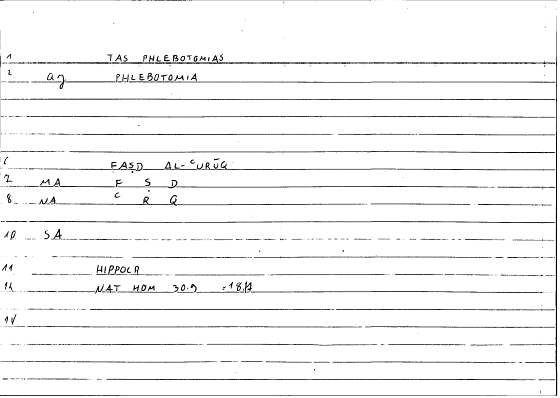 1 TAS PHLEBOTOMIAS
2 aj PHLEBOTOMIA
6 FAṢD AL-ᶜURŪQ
7 MA F Ṣ D
8 NA ᶜ R Q
10 SA
11 HIPPOCR
12 NAT HOM 30.9
14